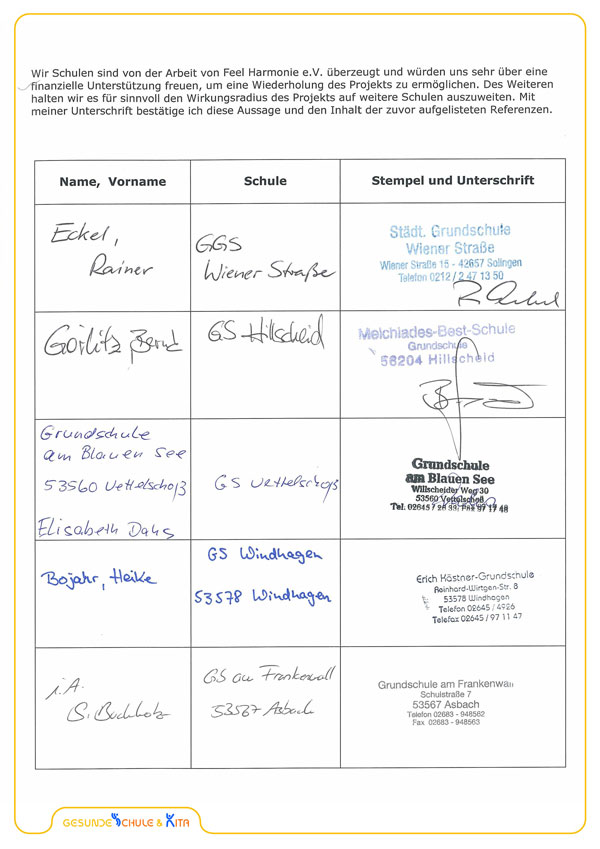 Wir Schulen sind von der Arbeit von Feel Harmonie e.V. überzeugt und würden uns sehr über eine
finanzielle Unterstützung freuen, um eine Wiederholung des Projekts zu ermöglichen. Des Weiteren
halten wir es für sinnvoll den Wirkungsradius des Projekts auf weitere Schulen auszuweiten. Mit
meiner Unterschrift bestätige ich diese Aussage und den Inhalt der zuvor aufgelisteten Referenzen.
Name, Vorname
Schule
Stempel und Unterschrift
Eckel,
Rainer
GGS
Wiener Straße
Städt. Grundschule
Wiener Straße
Wiener Straße 15 - 42657 Solingen
Telefon 0212 / 2 47 13 50
Görlitz Bernd
GS Hillscheid
Melchiades-Best-Schule
Grundschule
56204 Hillscheid
Grundschule
am Blauen See
53560 Vettelschoß
Elisabeth Dahs
GS Vettelschoß
Grundschule
am Blauen See
Willscheider Weg 30
53560 Vettelschoß
Tel. 02645 / 26 39, Fax 97 17 48
Bojahr, Heike
GS Windhagen
53578 Windhagen
Erich Kästner-Grundschule
Reinhard-Wirtgen-Str. 8
53578 Windhagen
Telefon 02645 / 4926
Telefax 02645 / 97 11 47
i.A.
S. Buchholz
GS am Frankenwall
53567 Asbach
Grundschule am Frankenwall
Schulstraße 7
53567 Asbach
Telefon 02683 - 948562
Fax 02683 - 948563
GESUNDE SCHULE & KITA